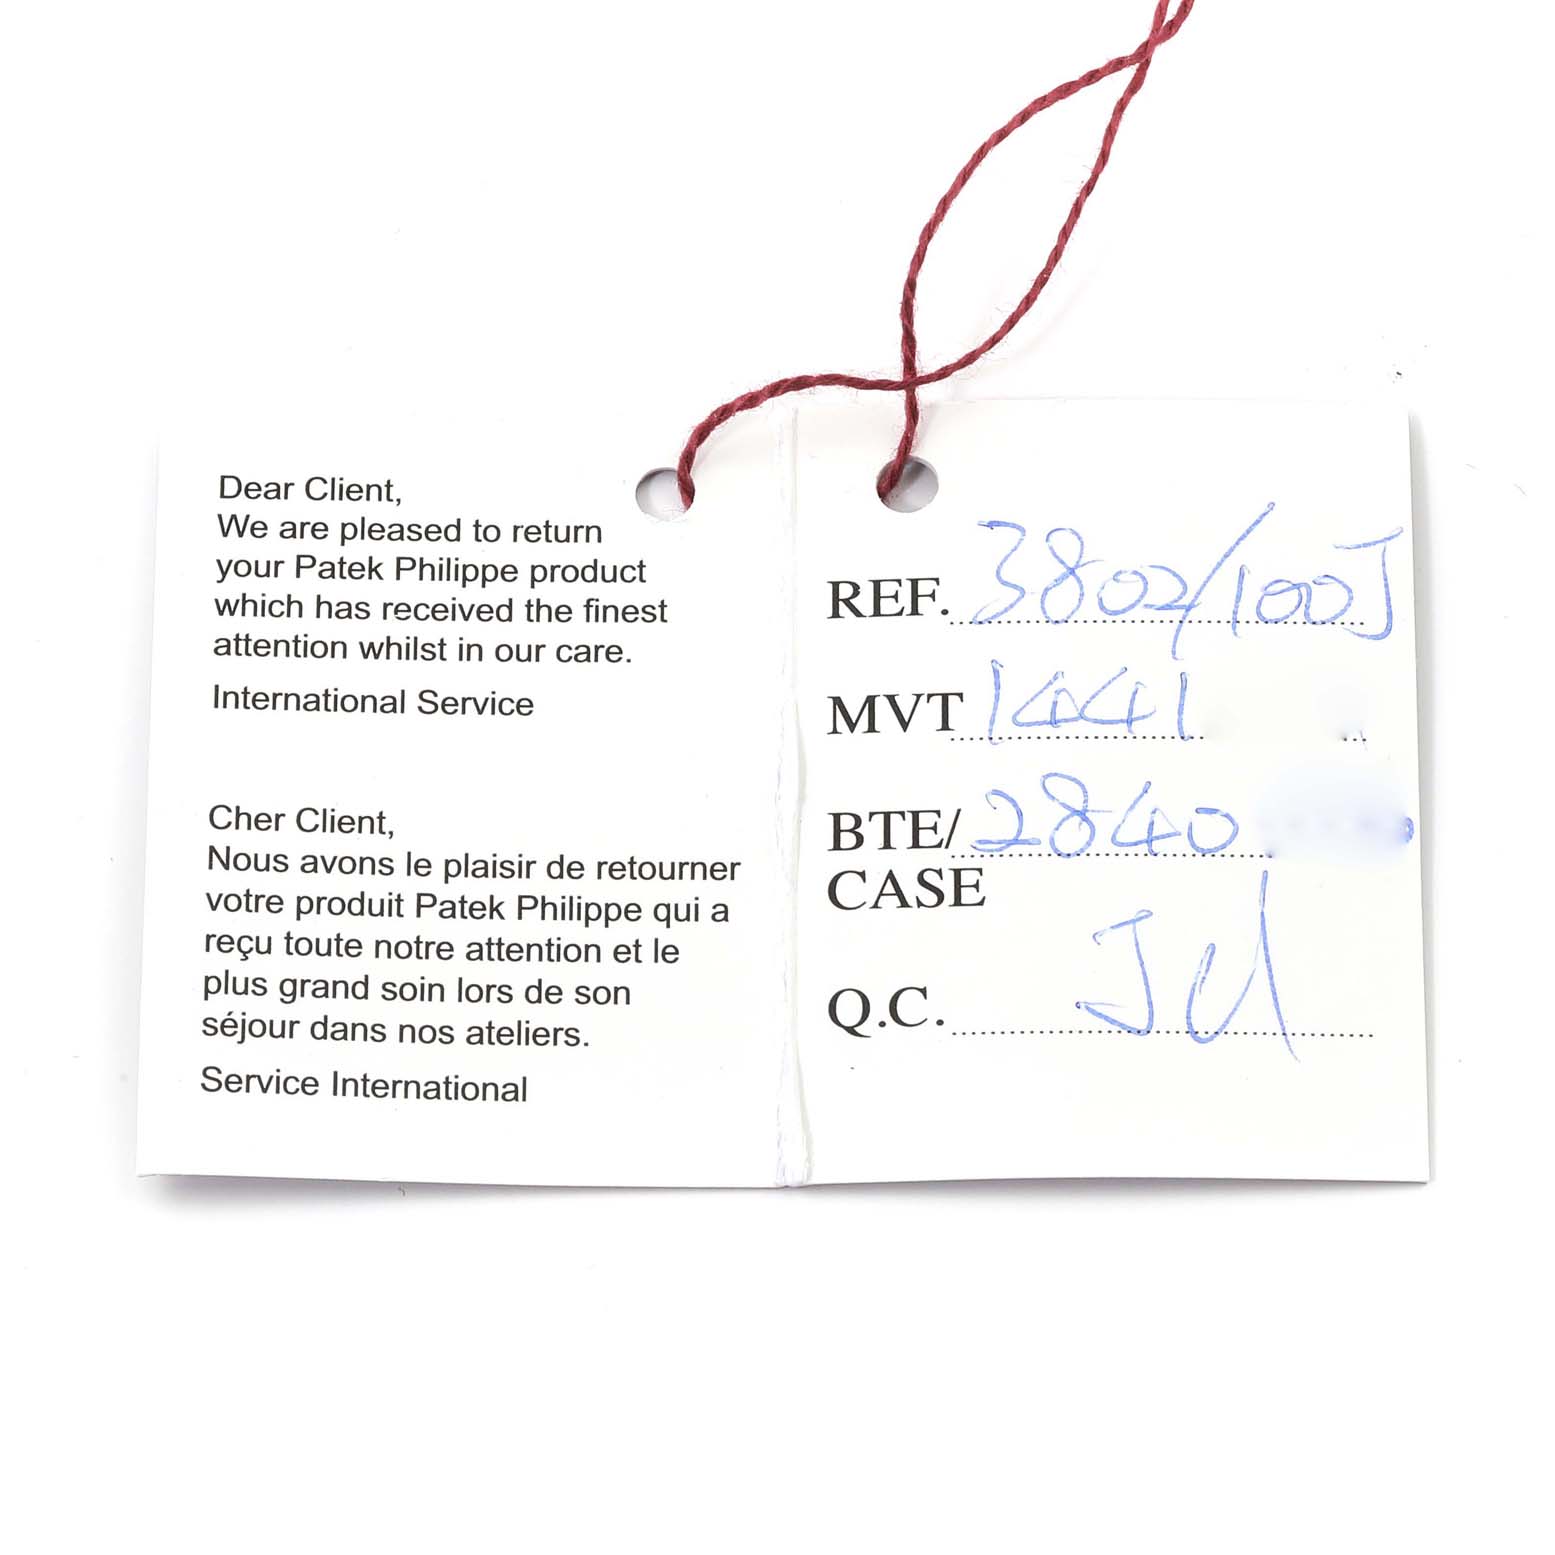 Dear Client,
We are pleased to return
your Patek Philippe product
which has received the finest
attention whilst in our care.
International Service
Cher Client,
Nous avons le plaisir de retourner
votre produit Patek Philippe qui a
reçu toute notre attention et le
plus grand soin lors de son
séjour dans nos ateliers.
Service International
REF. 3802/100J
MVT 1441
BTE/ 2840
CASE
Q.C.